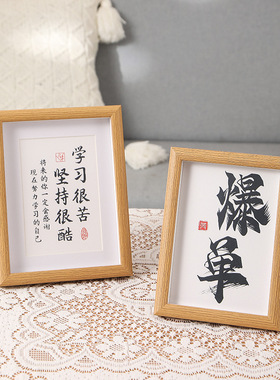 学习很苦
坚持很酷
将来的你一定会感谢
现在努力学习的自己
爆单